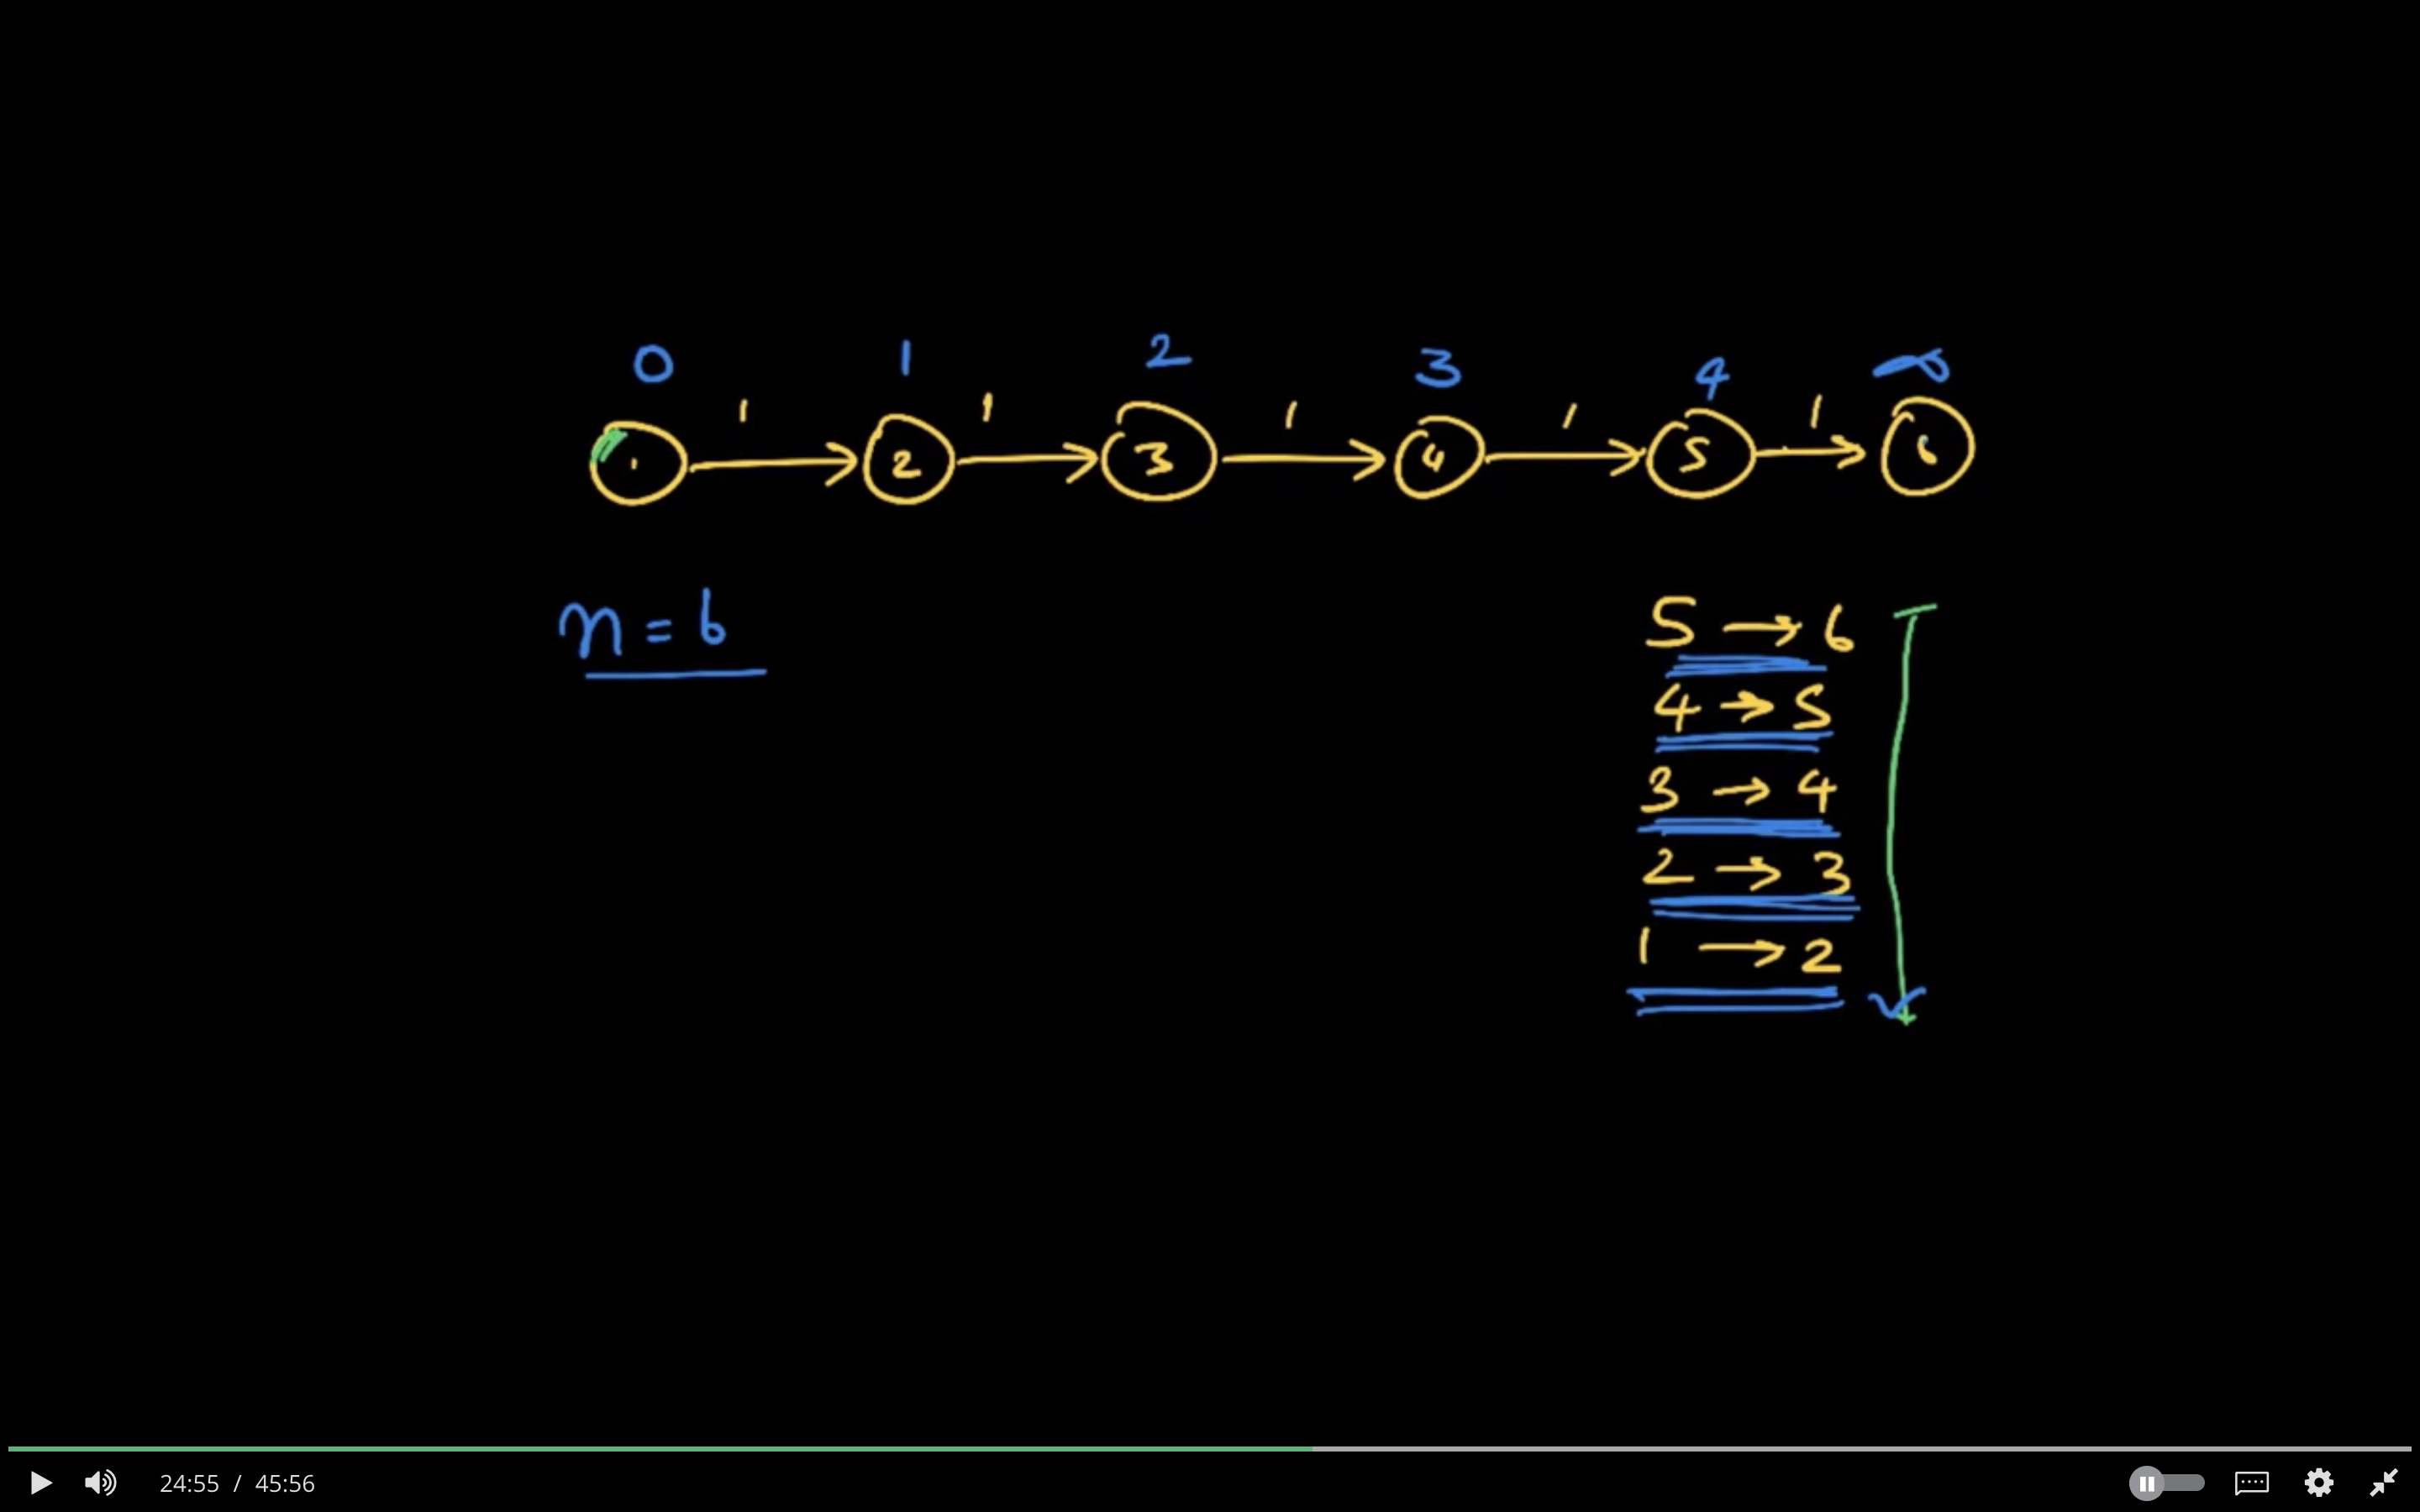 0 1 2 3 4 ∞
1 1 1 1 1
1 2 3 4 5 6
n = 6
5 → 6
4 → 5
3 → 4
2 → 3
1 → 2
24:55 / 45:56